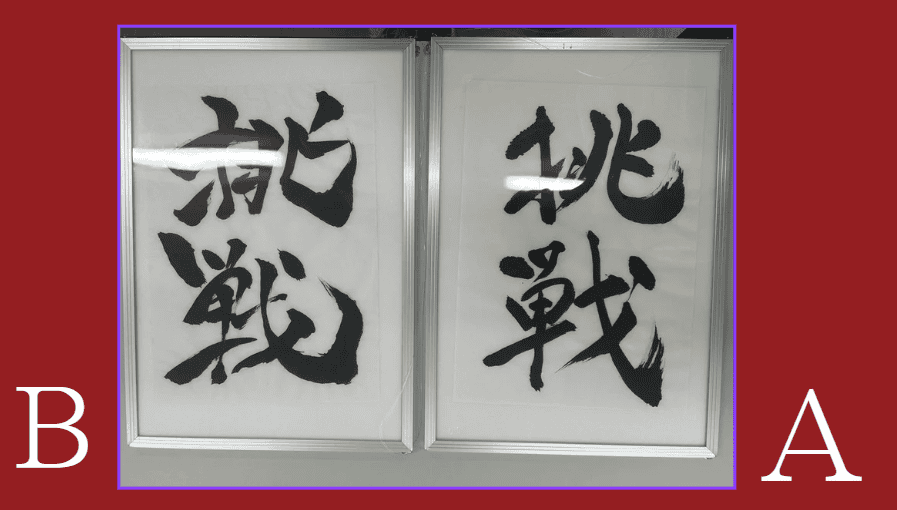 挑
戦
挑
戦
B
A